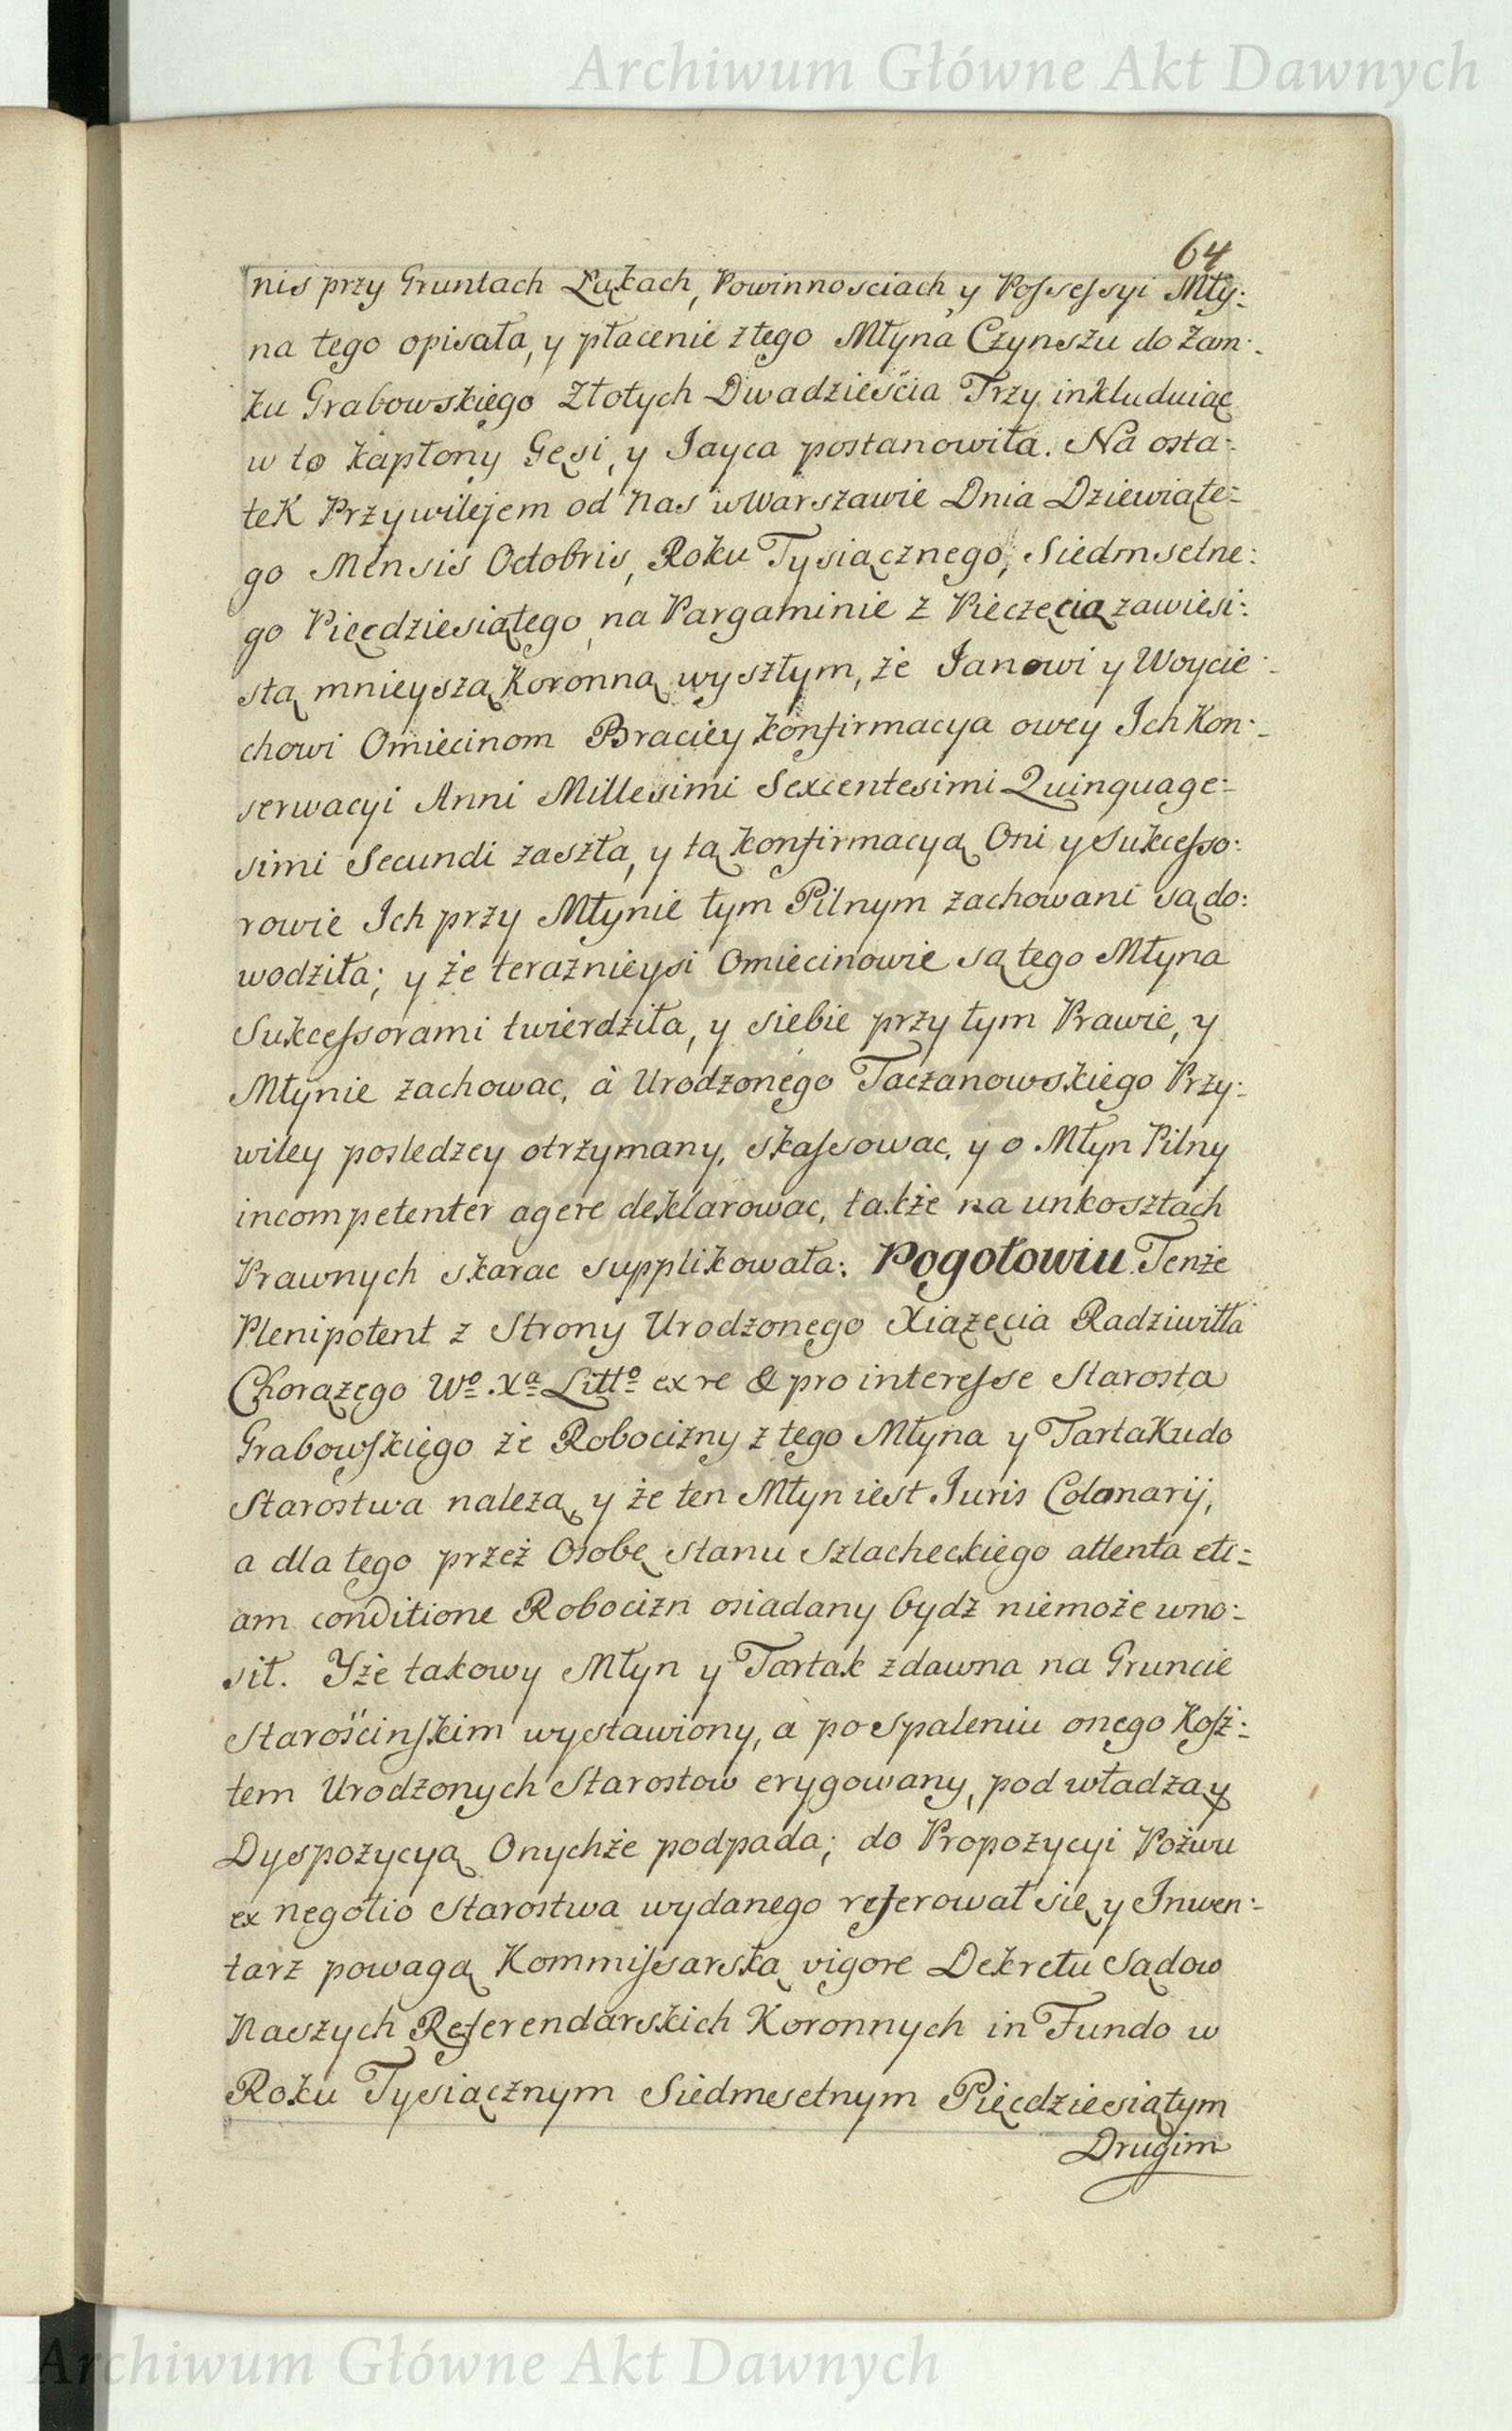 Archiwum Główne Akt Dawnych
64
nis przy Gruntach Łąkach, Powinnosciach y Possessyi Mły:
na tego opisała, y płacenie z tego Młyna Czynszu do Zam:
ku Grabowskiego Złotych Dwadzieścia Trzy inkluduiąc
w to Kapłony Gęsi, y Jayca postanowiła. Na osta:
tek Przywilejem od Nas w Warszawie Dnia Dziewiąte:
go Mensis Octobris, Roku Tysiącznego, Siedmsetne:
go Pięcdziesiątego, na Pargaminie z Pieczęcią zawiesi:
stą mnieyszą Koronną wyszłym, że Janowi y Woycie:
chowi Omiecinom Braciey konfirmacya owey Ich Kon:
serwacyi Anni Millesimi Sexcentesimi Quinquage:
simi Secundi zaszła, y tą konfirmacyą Oni y Sukcesso:
rowie Ich przy Młynie tym Pilnym zachowani są do:
wodziła; y że teraznieysi Omiecinowie są tego Młyna
Sukcessorami twierdziła, y siebie przy tym Prawie, y
Młynie zachowac, à Urodzonego Taczanowskiego Przy:
wiley posledzey otrzymany, skassowac, y o Młyn Pilny
incompetenter agere deklarowac, także na unkosztach
Prawnych skarac supplikowała: Pogotowiu Tenże
Plenipotent z Strony Urodzonego Xiążęcia Radziwiłła
Chorążego Wo. Xa Litto ex re & pro interesse Starosta
Grabowskiego że Robocizny z tego Młyna y Tartaku do
Starostwa należą, y że ten Młyn iest Juris Colonarij,
a dla tego przez Osobę stanu Szlacheckiego attenta eti:
am conditione Robocizn osiadany bydz niemoże wno:
sił. Yże takowy Młyn y Tartak zdawna na Gruncie
Starościnskim wystawiony, à po Spaleniu onego Kosz:
tem Urodzonych Starostow erygowany, pod władzą y
Dyspozycyą Onychże podpada; do Propozycyi Pozwu
ex negotio Starostwa wydanego referował się, y Inwen:
tarz powagą Kommissarską vigore Dekretu Sądow
Naszych Referendarskich Koronnych in Fundo w
Roku Tysiącznym Siedmsetnym Pięcdziesiątym
Drugim
Archiwum Główne Akt Dawnych